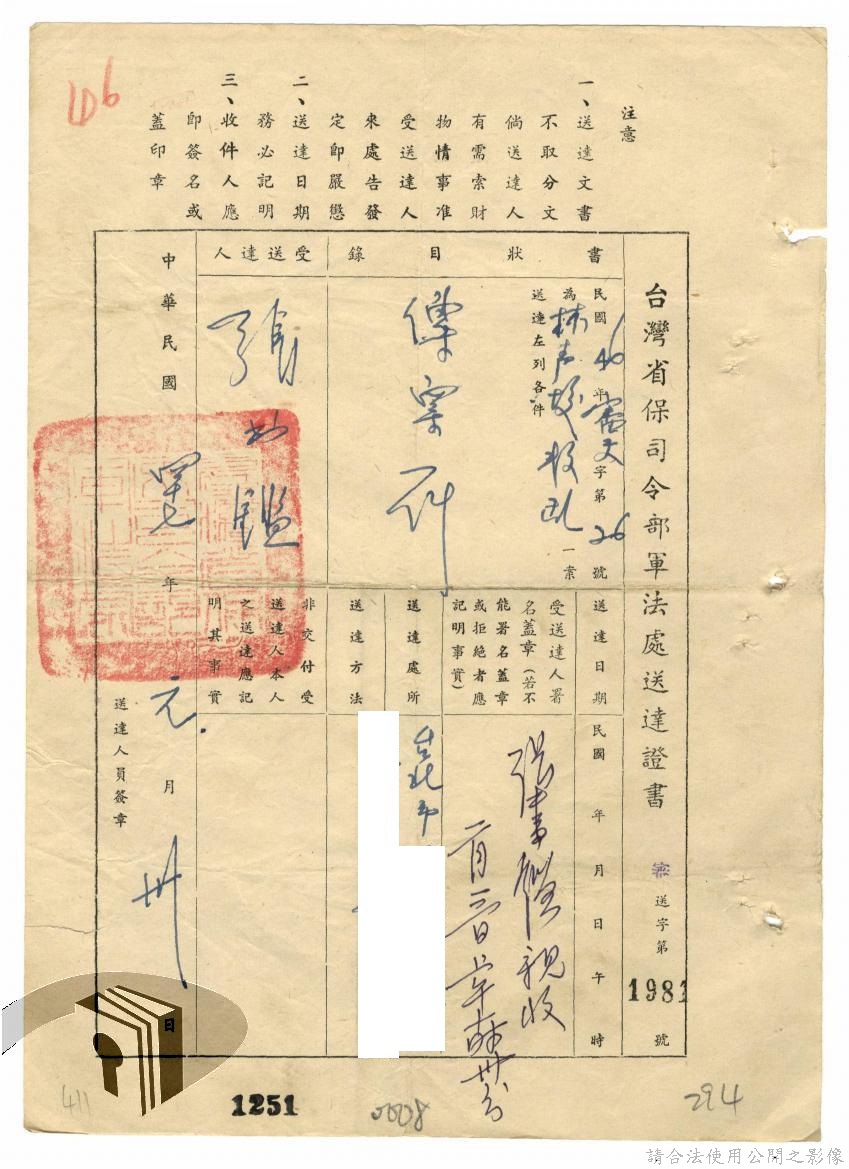 106
注意
一、送達文書
不取分文
倘送達人
有需索財
物情事准
受送達人
來處告發
定即嚴懲
二、送達日期
務必記明
三、收件人應
即簽名或
蓋印章
台灣省保司令部軍法處送達證書
送字第1981號
書狀目錄
民國46年審文字第26號
為林声发叛乱一案
送達左列各件
傳票 一件
受送達人
張
鑑
送達日期
民國 年 月 日 午 時
受送達人署
名蓋章(若不
能署名蓋章
或拒絕者應
記明事實)
親收
送達處所
台北市
送達方法
非交付受
送達人本人
之送達應記
明其事實
中華民國四十七年元月卅日
送達人員簽章
411
1251
0008
294
請合法使用公開之影像